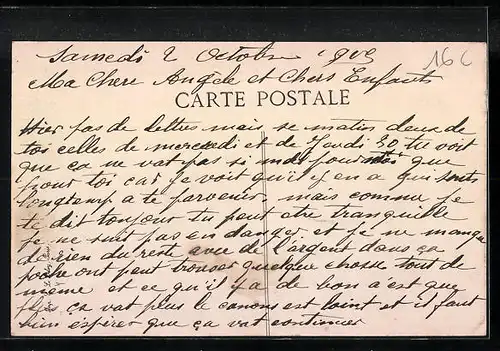 Samedi 2 Octobre 1915
16 c
Ma Chere Angele et Chers Enfants
CARTE POSTALE
Hier pas de lettres mais se matin deux de
toi celles de mercredi et de Jeudi 30, tu voit
que ça ne vat pas si mal pour moi que
pour toi car je voit qu'il y en a qui sont
longtemp a te parvenir, mais comme je
te dit toujour tu peut etre tranquille
je ne suit pas en danger et je ne manque
de rien du reste avec de l'argent dans ça
poche ont peut trouver quelque chosse tout de
meme et ce qu'il y a de bon s'est que
plus ça vat plus le canons est loint et il faut
bien esperer que ça vat continuer